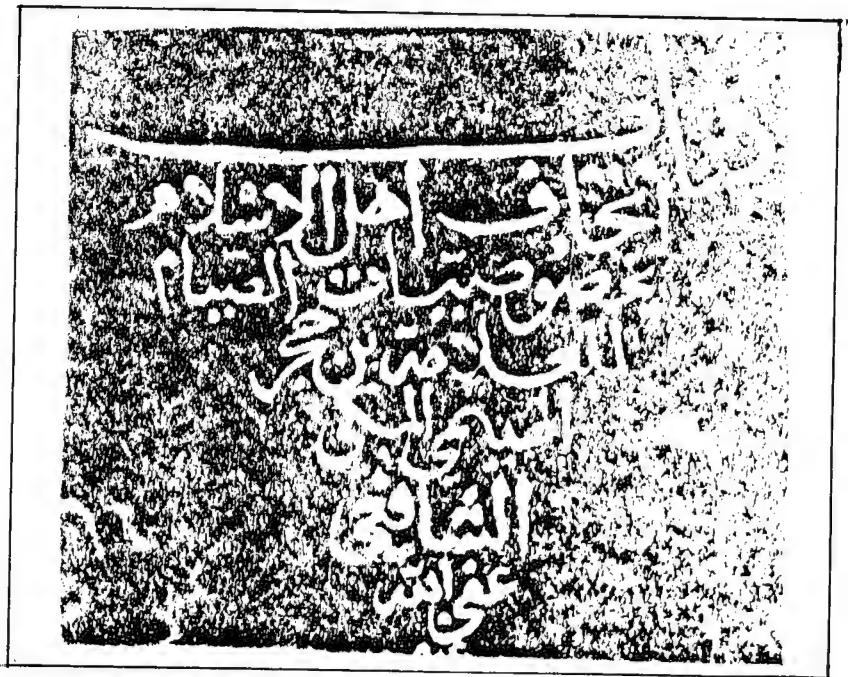 كتاب
إتحاف أهل الإسلام
بخصوصيات الصيام
للعلامة بن حجر
الهيتمي المكي
الشافعي
عفى الله